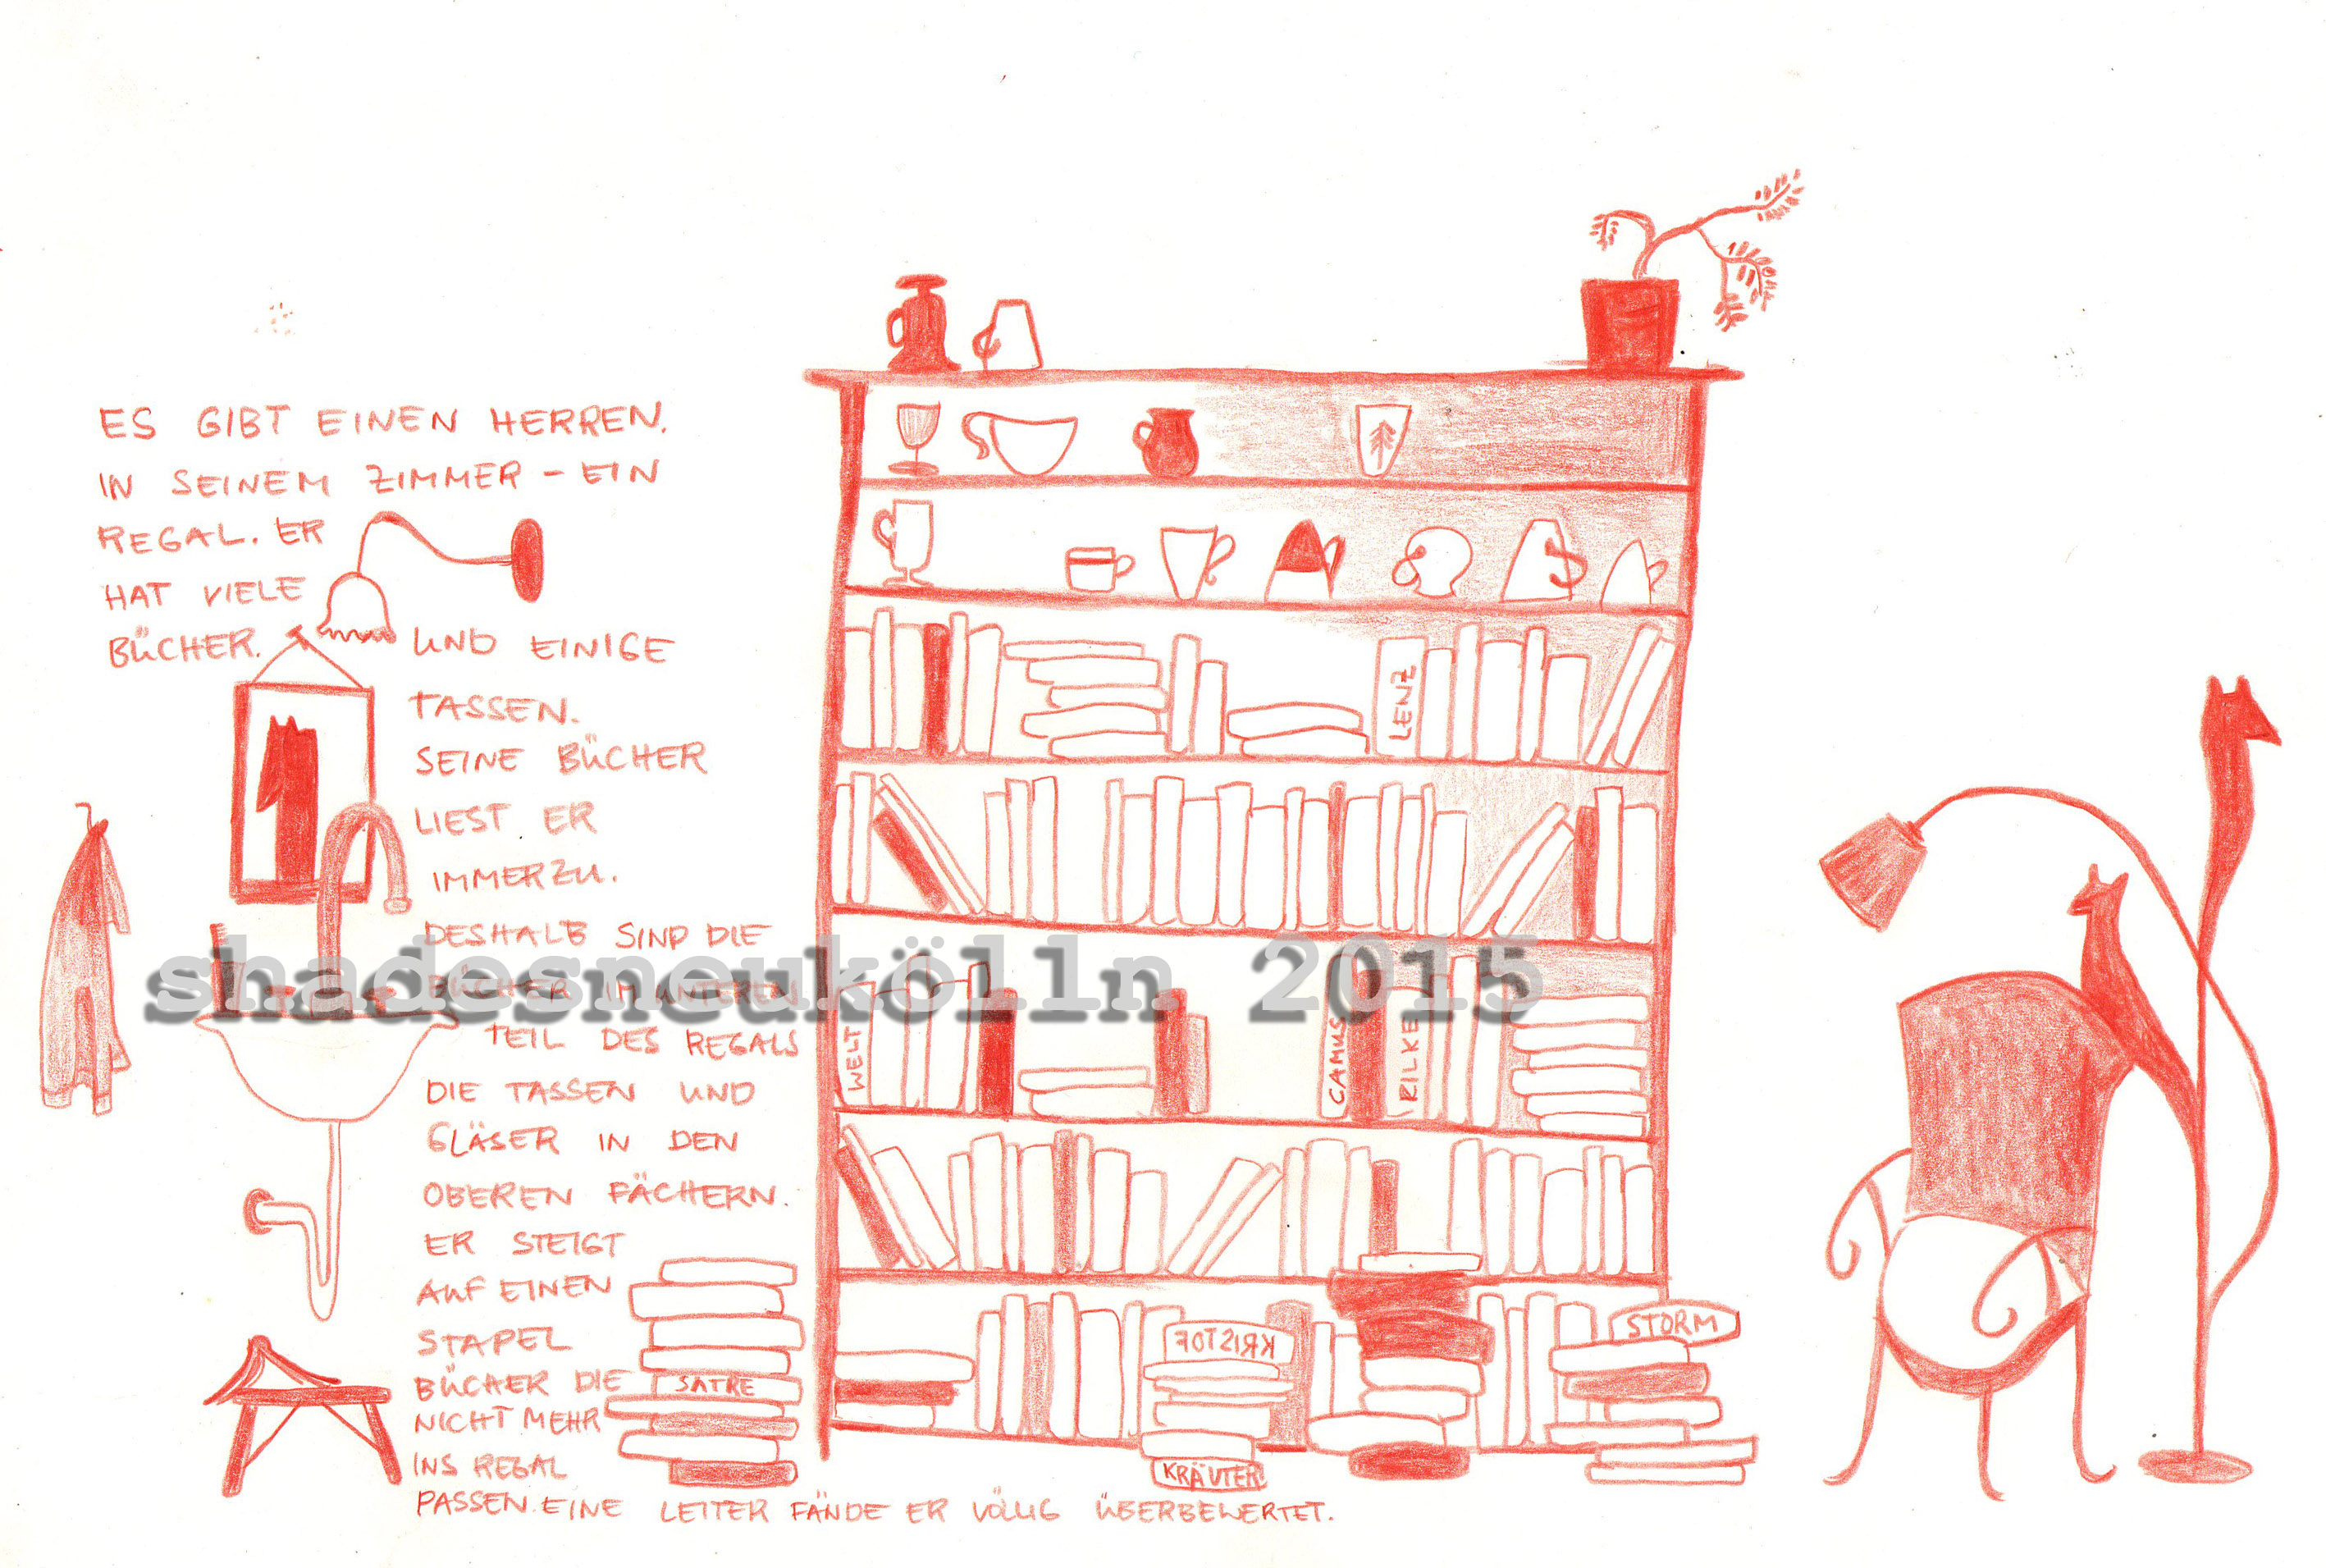 ES GIBT EINEN HERREN.
IN SEINEM ZIMMER – EIN
REGAL. ER
HAT VIELE
BÜCHER. UND EINIGE
TASSEN.
SEINE BÜCHER
LIEST ER
IMMERZU.
DESHALB SIND DIE
BÜCHER IM UNTEREN
TEIL DES REGALS
DIE TASSEN UND
GLÄSER IN DEN
OBEREN FÄCHERN.
ER STEIGT
AUF EINEN
STAPEL
BÜCHER DIE
NICHT MEHR
INS REGAL
PASSEN. EINE LEITER FÄNDE ER VÖLLIG ÜBERBEWERTET.
shadesneukölln 2015
LENZ
WELT
CAMUS
RILKE
SATRE
KRISTOF
STORM
KRÄUTER